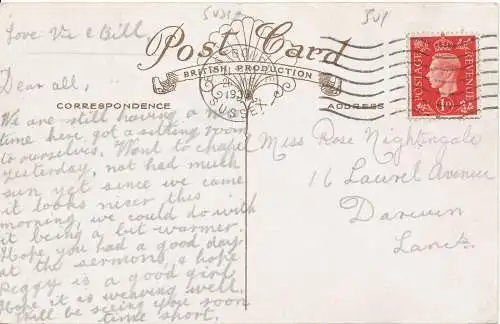 Love Vi & Bill.
Post Card
BRITISH PRODUCTION
CORRESPONDENCE
ADDRESS
SUSSEX
POSTAGE
REVENUE
Dear all,
We are still having a nice
time here, got a sitting room
to ourselves. Went to chapel
yesterday, not had much
sun yet since we came
it looks nicer this
morning, we could do with
it being a bit warmer.
Hope you had a good day
at the sermons, & hope
Peggy is a good girl
Hope it is weaving well.
Will be seeing you soon
time short.
Miss Rose Nightingale
16 Laurel Avenue
Darwen
Lancs.